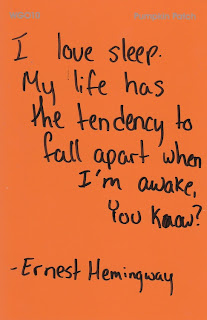 I love sleep.
My life has
the tendency to
fall apart when
I'm awake,
You know?
-Ernest Hemingway